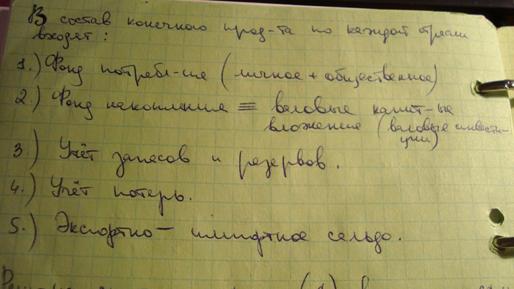 В состав конечного прод-та по каждой отрасли
входят:
1.) Фонд потребл-ние (личное + общественное)
2.) Фонд накопления ≡ валовые капит-ые
вложение (валовые инвести-
ции)
3.) Учёт запасов и резервов.
4.) Учёт потерь.
5.) Экспортно – импортное сальдо.